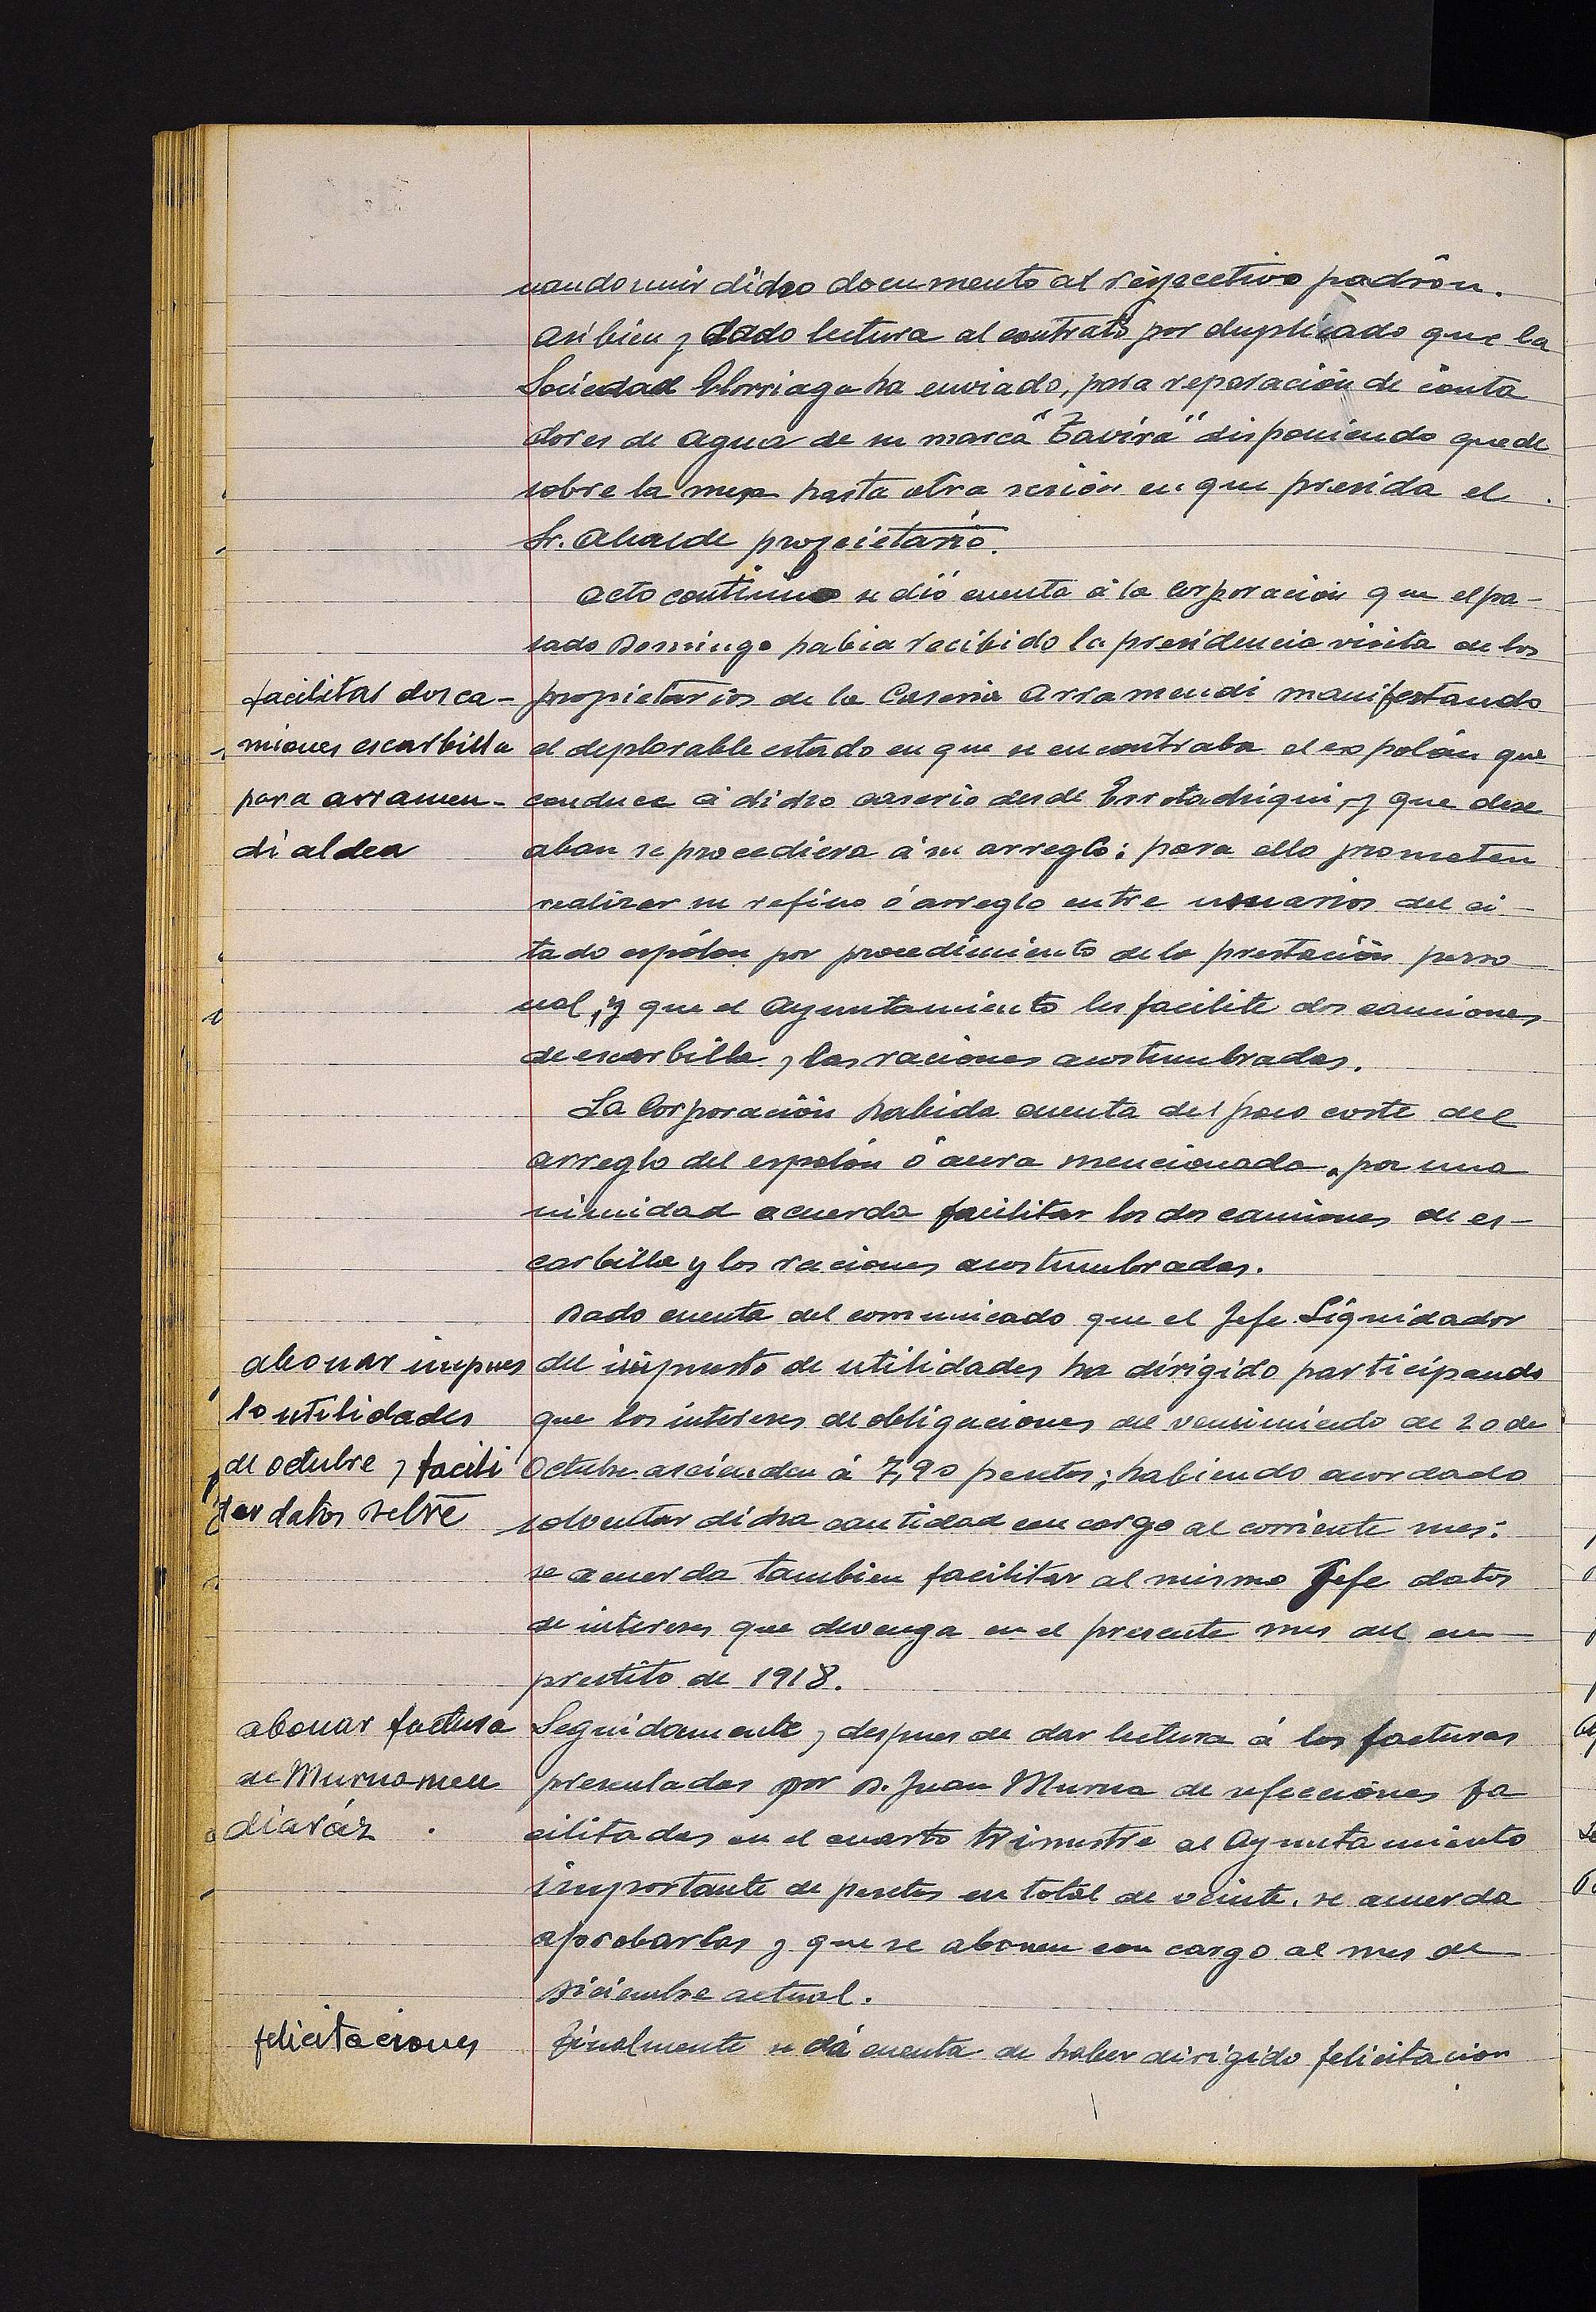 nando unir dicho documento al respectivo padrón.
Asi bien y dado lectura al contrato por duplicado que la
Sociedad Elorriaga ha enviado, para reparación de conta
dores de agua de su marca "Tavira" disponiendo quede
sobre la mesa hasta otra sesión en que presida el
Sr. Alcalde propietario.
Acto continuo se dió cuenta á la Corporación que el pa-
sado Domingo habia recibido la presidencia visita de los
facilitar dos ca-
miones escarbilla
para arramen-
di aldea
propietarios de la Caseria Arramendi manifestando
el deplorable estado en que se encontraba el espolón que
conduce á dicho caserio desde Errotachiqui, y que dese
aban se procediera á su arreglo; para ello prometen
realizar su refino ó arreglo entre usuarios del ci-
tado espólon por procedimiento de la prestación perso
nal, y que el Ayuntamiento les facilite dos camiones
de escarbilla y las raciones acostumbradas.
La Corporación habida cuenta del poco coste del
arreglo del espolón ó acera mencionada, por una
nimidad acuerda facilitar los dos camiones de es-
carbilla y las raciones acostumbradas.
Dado cuenta del comunicado que el Jefe Liquidador
abonar impues
to utilidades
de octubre y facili
tar datos sobre
del impuesto de utilidades ha dirigido participando
que los intereses de obligaciones del vencimiento de 20 de
Octubre ascienden á 7,90 pesetas; habiendo acordado
solventar dicha cantidad con cargo al corriente mes:
se acuerda tambien facilitar al mismo Jefe datos
de intereses que devenga en el presente mes del em-
prestito de 1918.
abonar factura
de Murnamen
diaráz
Seguidamente y despues de dar lectura á las facturas
presentadas por D. Juan Murua de refecciones fa
cilitadas en el cuarto trimestre al Ayuntamiento
importante de pesetas en total de veinte, se acuerda
aprobarlas y que se abonen con cargo al mes de
Diciembre actual.
felicitaciones
Finalmente se dá cuenta de haber dirigido felicitacion